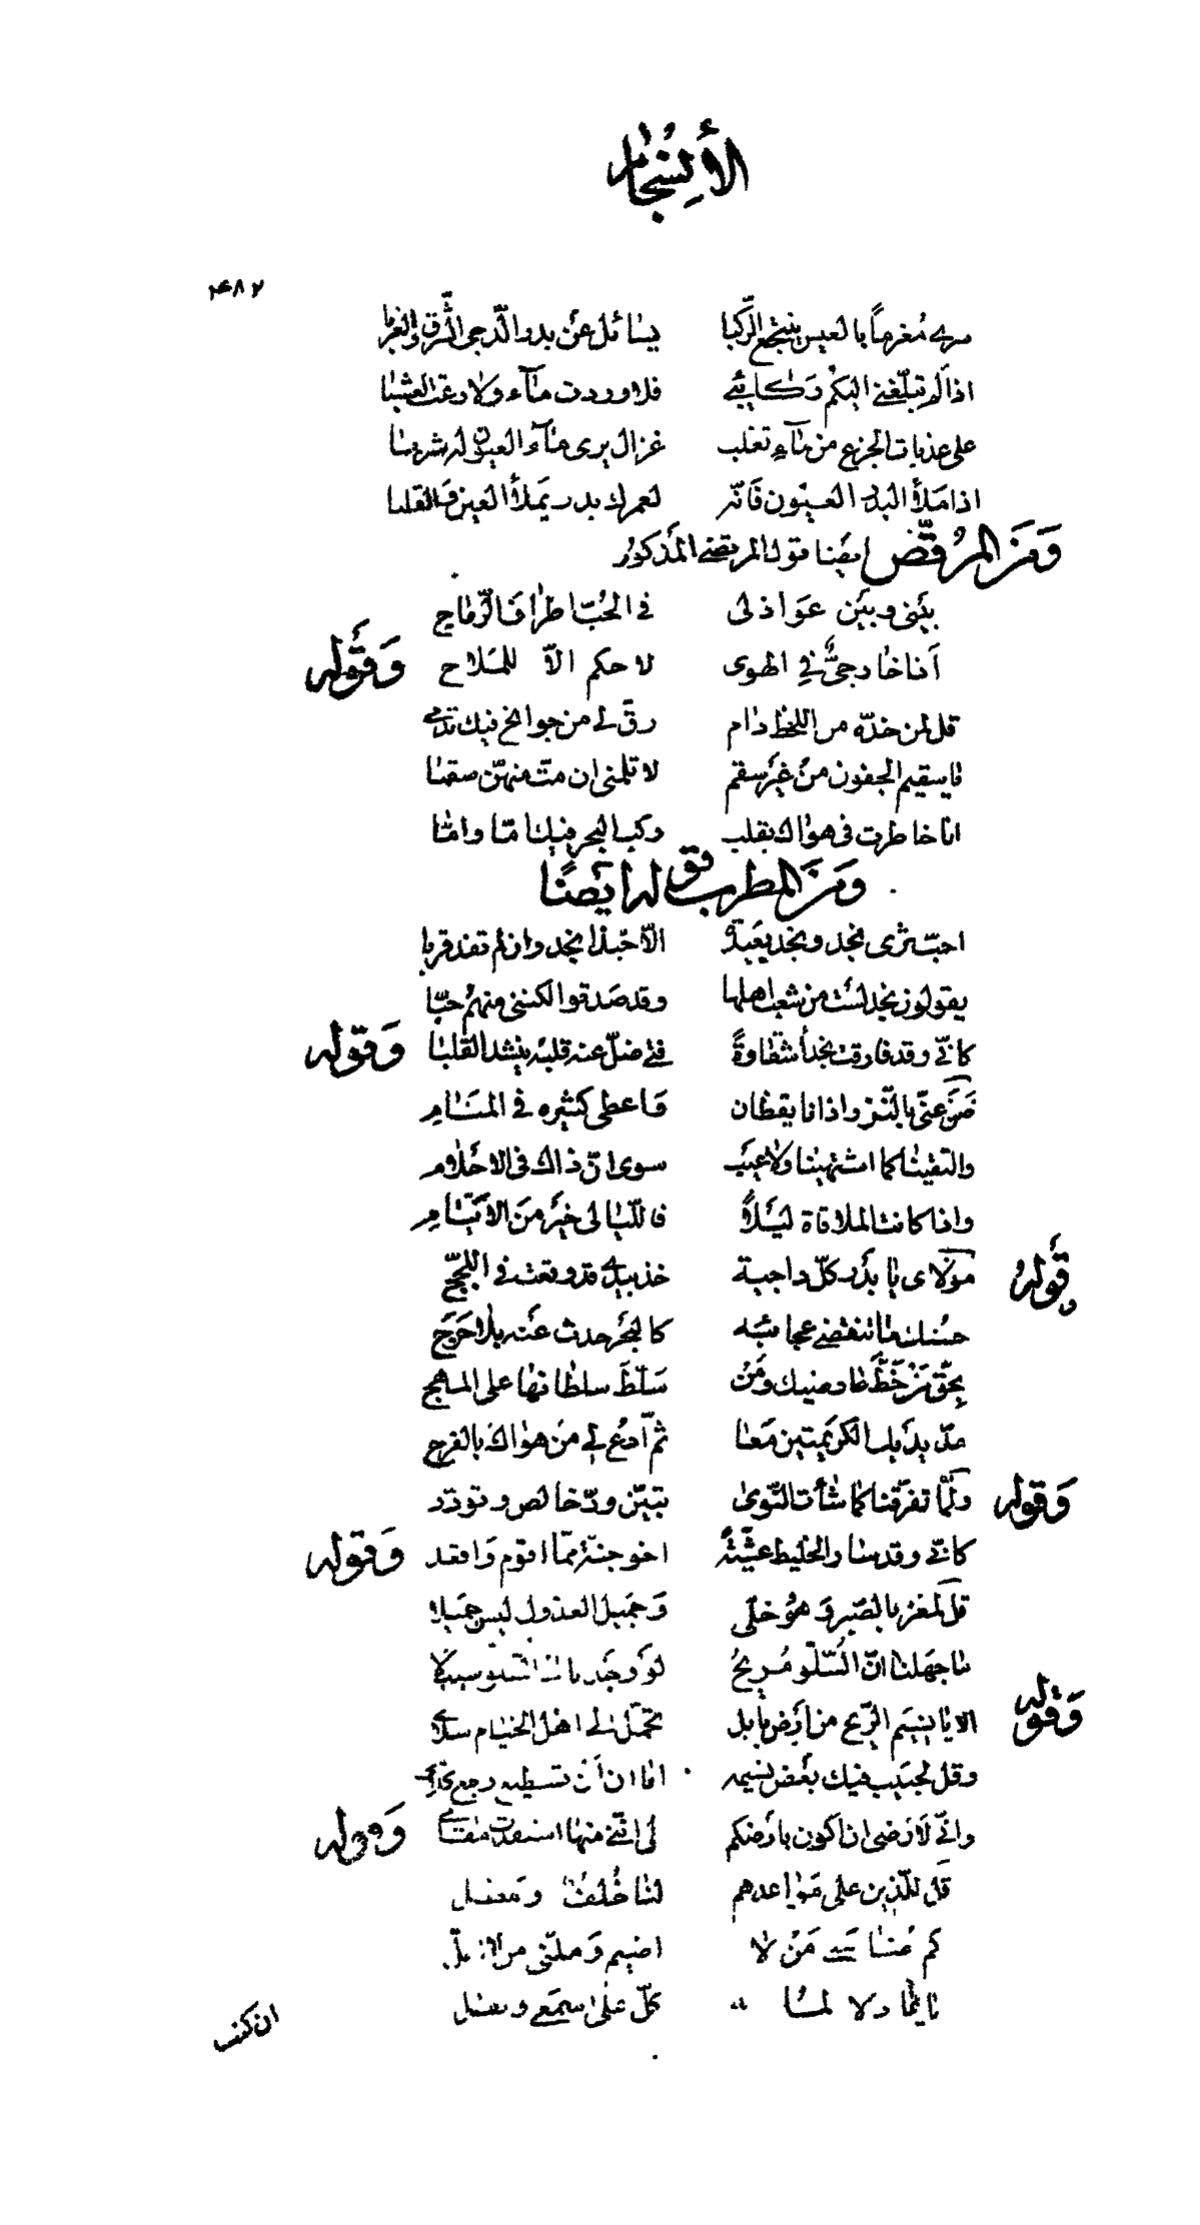 الأنسجام
۴۸۷
سرى مُغرماً بالعيس ينتجع الرّكبا يسائل عن بدر الدّجى الشّرق والغربا
اذا لم تبلّغنى اليكم ركائبي فلا وردت مآء ولا رعت العشبا
على عذبات الجزع من مآء تغلب غزال يرى مآء العيون له شربا
اذا ملأ البدر العيون فانّه لعمرك بدر يملأ العين والقلبا
وَمنَ المرُقّص ايضا قول المرتضى المذكور
بينى وبين عواذلى فى الحُبّ اطراف الرّماح
أنا خارجىٌّ في الهوى لا حكم الاّ للملاح وَقَوله
قل لمن خدّه من اللحظ دام رقّ لى من جوانح فيك تدمى
يا سقيم الجفون من غير سقم لا تلمنى ان متّ منهنّ سقما
انا خاطرت فى هواك بقلب ركب البحر فيك امّا وامّا
وَمنَ المطرب قوله ايضًا
احبّ ثرى نجد ونجد بعيدة الاّ حبّذا نجد وان لم تفد قربا
يقولون نجد لست من شعب اهلها وقد صدقوا لكننى منهم حبّا
كانّى وقد فارقت نجداً شقاوةً فتى ضلّ عنه قلبه ينشد القلبا وَقَوله
ضنّ عنّى بالنّزر اذ انا يقظان واعطى كثيره فى المنام
والتقينا كما اشتهينا ولا عيب سوى انّ ذاك فى الاحلام
واذا كانت الملاقاة ليلاً فالليالى خير من الايّام
وقوله مولاى يا بدر كلّ داجية خذ بيدى قد وقعت فى اللجج
حسنك ما تنقضى عجائبه كالبحر حدث عنه بلا حرج
بحقّ من خطّ عارضيك ومن سلّط سلطانها على المهج
مدّ يديك الكريمتين معا ثم ادع لى من هواك بالفرج
وَقوله ولمّا تفرّقنا كما شأت النّوى تبيّن ودّ خالص وتودّد
كانّى وقد سار الخليط عشيّةً اخو جنّة ممّا اقوم واقعد وَقوله
قل لمغز بالصّبر وهو خلى وجميل العذول ليس جميلا
ما جهلنا انّ السّلوّ مُريحٌ لو وجدنا الى السّلوّ سبيلا
وَقوله الا يا نسيم الرّيح من ارض بابل تحمّل الى اهل الخيام سلامى
وقل لحبيب فيك بعض نسيمه اما ان ان تسطيع رجع كلامى
وانّى لارضى ان اكون بارضكم على انّنى منها استفدت سقامى وَقوله
قل للّذين على مواعدهم لنا خُلفٌ ومطل
كم ضامنى من لا اضيم وملّنى من لا املّ
يا عاذلا لعتابه كلّ على سمعى وثقل
ان كنت